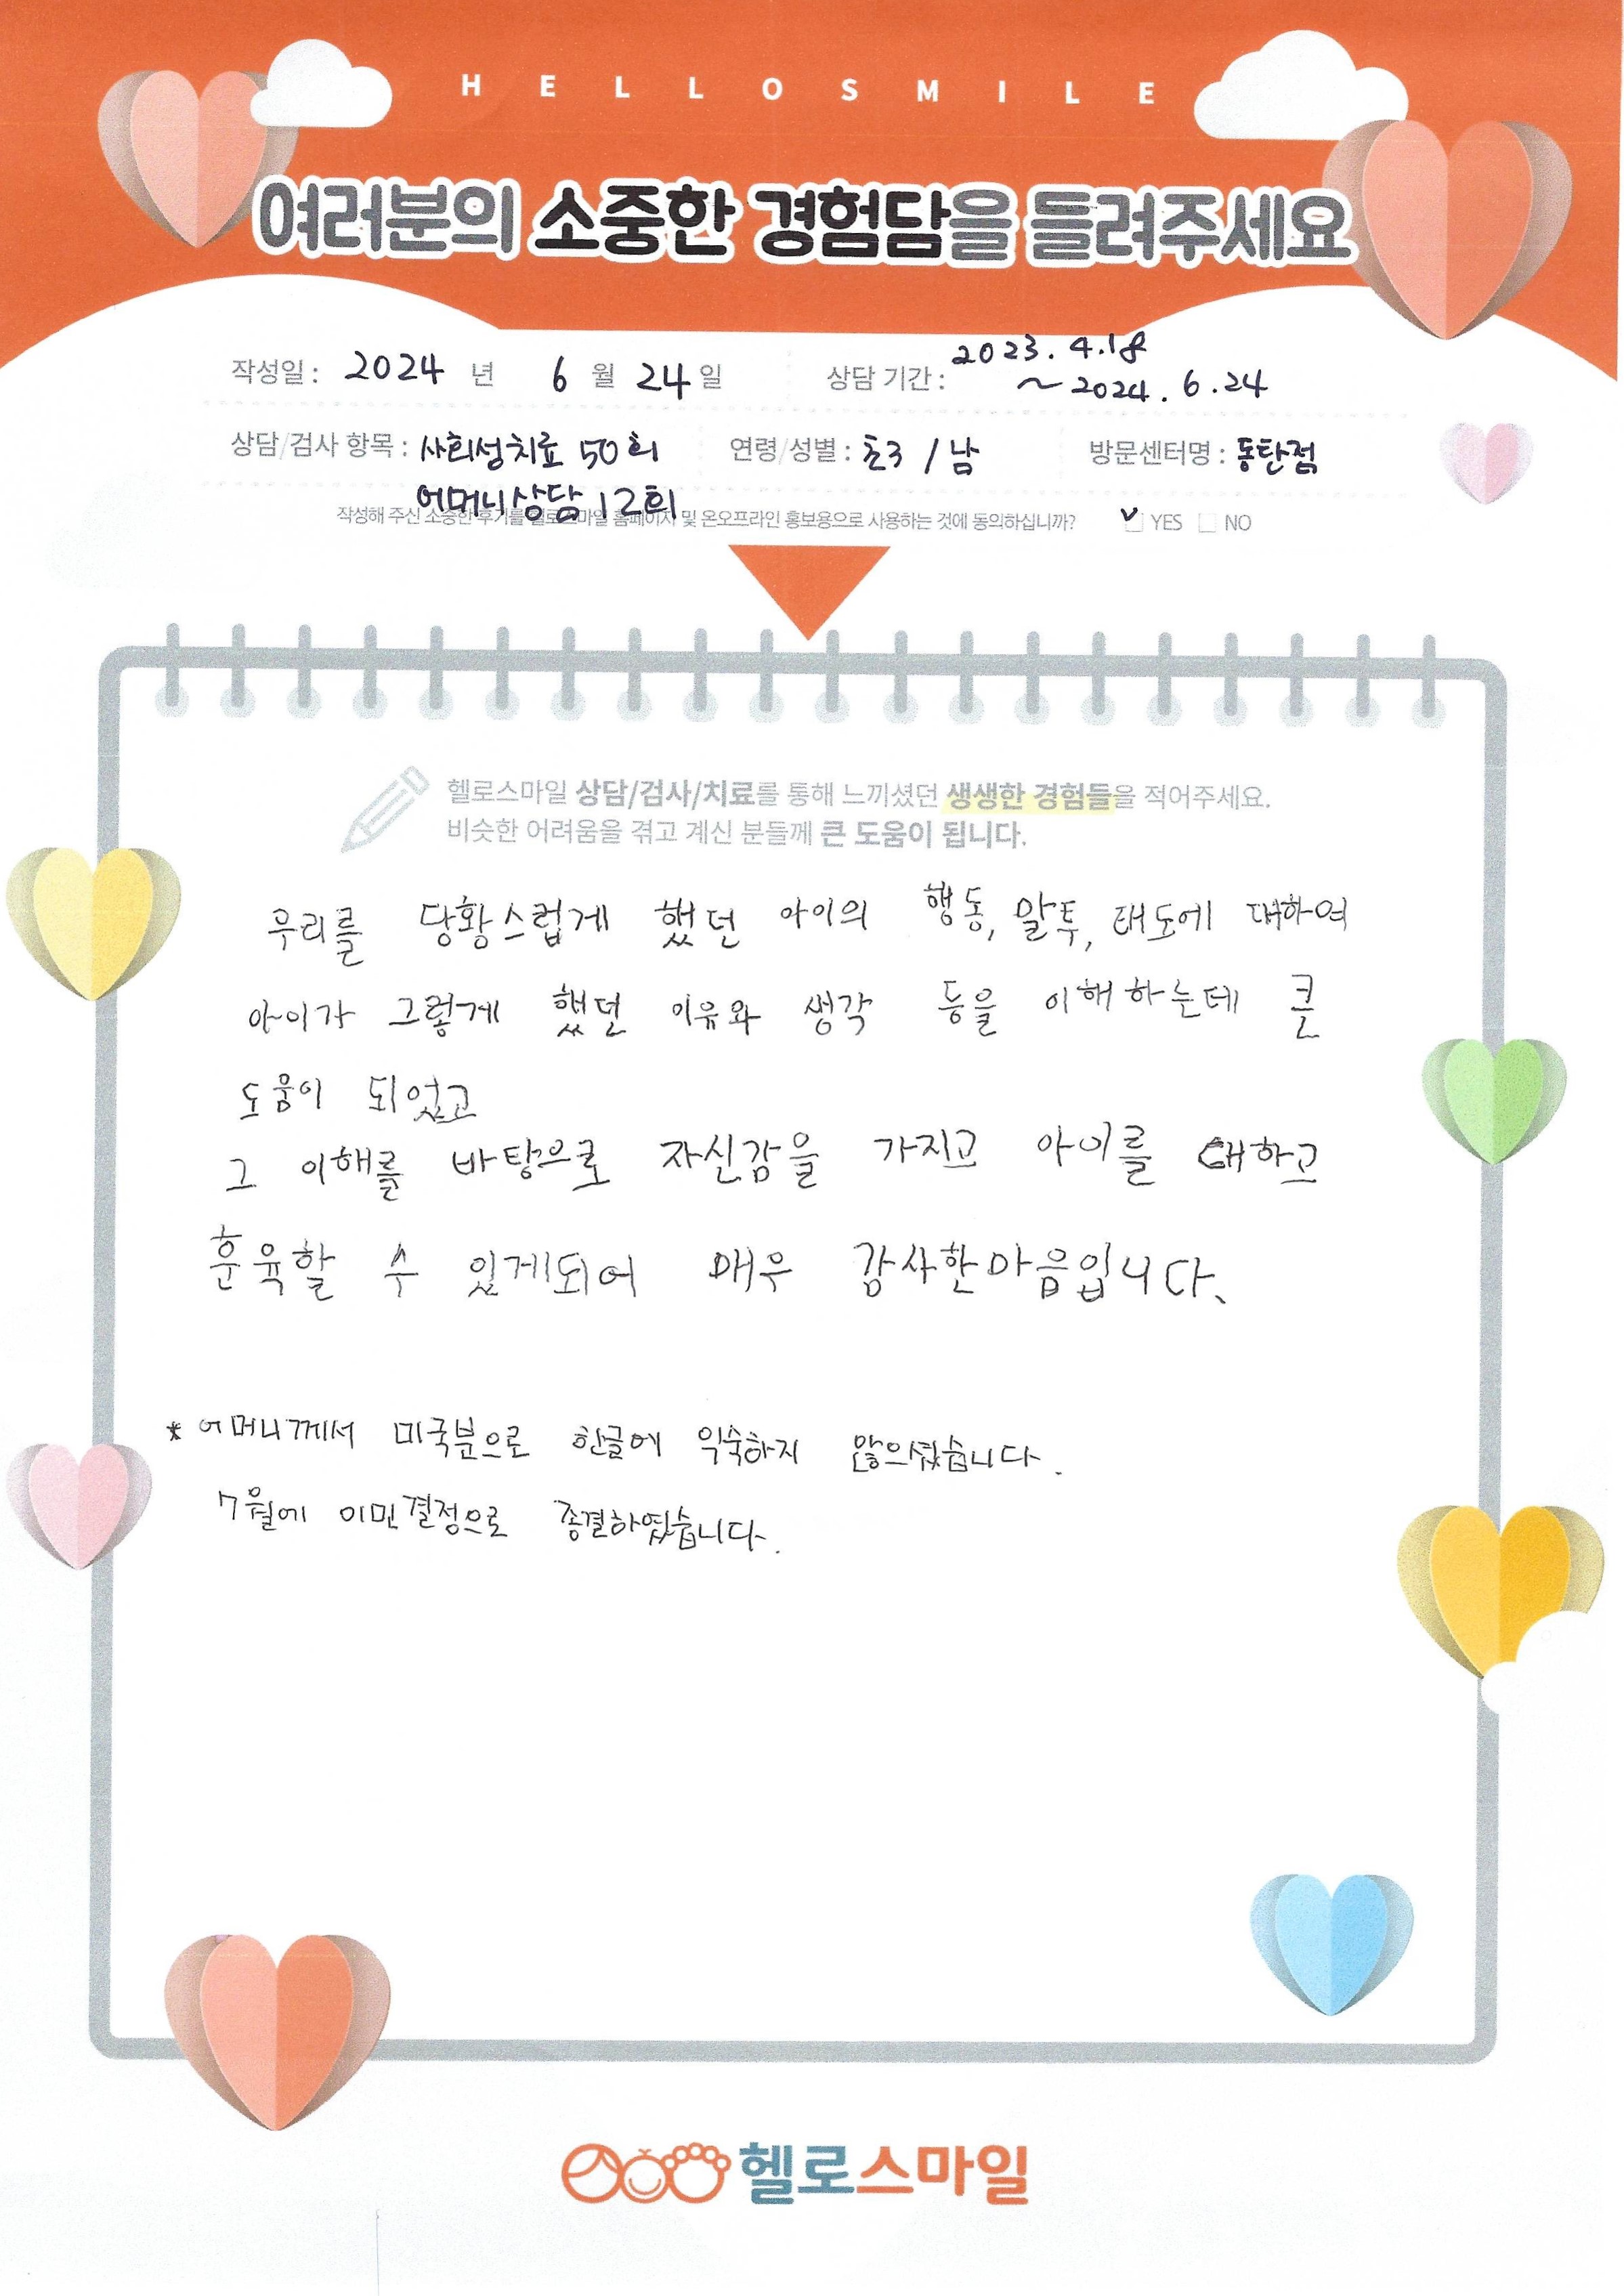 HELLOSMILE
여러분의 소중한 경험담을 들려주세요
작성일 : 2024 년 6 월 24 일 상담 기간 : 2023. 4.18
~ 2024. 6. 24
상담/검사 항목 : 사회성치료 50회 연령/성별 : 초3 / 남 방문센터명 : 동탄점
어머니상담 12회
작성해 주신 소중한 후기를 헬로스마일 홈페이지 및 온오프라인 홍보용으로 사용하는 것에 동의하십니까? ✓ YES NO
헬로스마일 상담/검사/치료를 통해 느끼셨던 생생한 경험들을 적어주세요.
비슷한 어려움을 겪고 계신 분들께 큰 도움이 됩니다.
우리를 당황스럽게 했던 아이의 행동, 말투, 태도에 대하여
아이가 그렇게 했던 이유와 생각 등을 이해하는데 큰
도움이 되었고
그 이해를 바탕으로 자신감을 가지고 아이를 대하고
훈육할 수 있게되어 매우 감사한마음입니다.
* 어머니께서 미국분으로 한글에 익숙하지 않으셨습니다.
7월에 이민결정으로 종결하였습니다.
헬로스마일